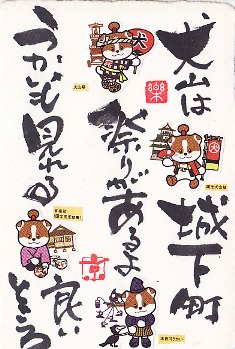 犬山は
城下町
祭りがあるよ
うかいも見れる
良い
ところ
犬
犬山祭
国宝犬山城
木曽川うかい
楽
京